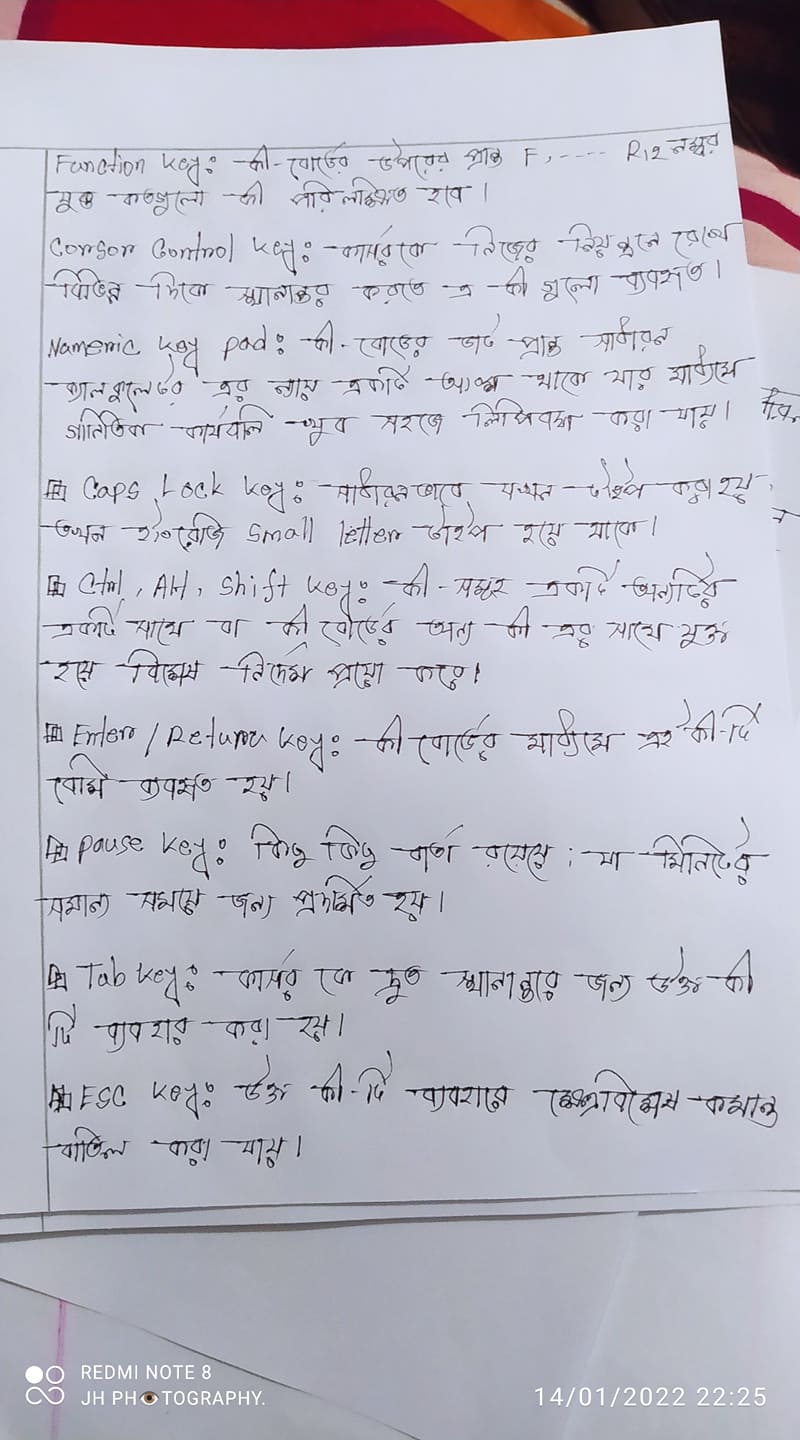 Function Key: কী-বোর্ডের উপরের প্রান্ত F, ---- R12 নম্বর
যুক্ত কতগুলো কী পরিলক্ষিত হবে।
Corson Control Key: কার্সরকে নিজের নিয়ন্ত্রনে রেখে
বিভিন্ন দিকে স্থানান্তর করতে এ কী গুলো ব্যবহৃত।
Nameric Key pad: কী-বোর্ডের ডার্ট প্রান্ত সাধারন
ক্যালকুলেটর এর ন্যায় একটি অংশ থাকে যার মাধ্যমে
গানিতিক কার্যবলি খুব সহজে লিপিবদ্ধ করা যায়।
Caps Lock Key: সাধারনভাবে যখন টাইপ করা হয়,
তখন ইংরেজি Small letter টাইপ হয়ে থাকে।
Ctrl, Alt, Shift Key: কী-সমূহ একটি অন্যটির
একটি সাথে বা কী বোর্ডের অন্য কী এর সাথে যুক্ত
হয়ে বিশেষ নির্দেশ প্রয়ো করে।
Enter / Return Key: কী বোর্ডের মাধ্যমে এই কী-টি
বেশি ব্যবহৃত হয়।
Pause Key: কিছু কিছু বার্তা রয়েছে; যা মিনিটের
সমান্য সময়ে জন্য প্রদর্শিত হয়।
Tab Key: কার্সর কে দ্রুত স্থানান্তরে জন্য উক্ত কী
টি ব্যবহার করা হয়।
ESC Key: উক্ত কী-টি ব্যবহারে ক্ষেত্রবিশেষ কমান্ড
বাতিল করা যায়।
REDMI NOTE 8
JH PHOTOGRAPHY.
14/01/2022 22:25